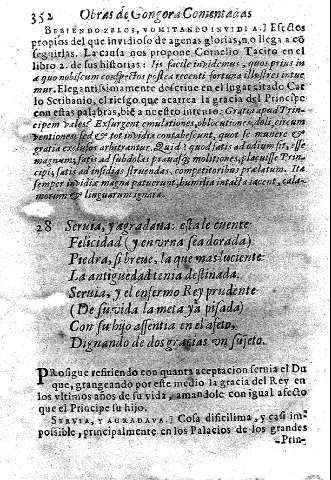 352 Obras de Gongora Comentadas
BEBIENDO ZELOS, VOMITANDO INVIDIA.] Efectos
propios del que invidioso de agenas glorias, no llega a có
seguirlas. La causa nos propone Cornelio Tacito en el
libro 2. de sus historias: Iis facile invidemus, quos prius in
a quo nobiscum conspectos postea recenti fortuna illustres intue
mur. Elegantissimamente descrive en el lugar citado Car
lo Scribanio, el riesgo que acarrea la gracia del Principe
con estas palabras, bié a nuestro intento: Gratia apud Prin
cipem vales? Exsurgent emulationes, oblocutiones, doli, circum
ventiones sed & tot invidia contabescunt, quot se munere &
gratia exclusos arbitrantur. Quid? quod satis ad odium sit, esse
magnum, satis ad subdolas pravasq; molitiones, placuisse Prin
cipi, satis ad insidias struendas, competitoribus prælatum. Ita
semper invidiæ magna patuerunt, humilia intacta iacent, cala-
morum & linguarum ignara.
28 Seruia, y agradaua: esta le cuente
Felicidad (y en vrna sea dorada)
Piedra, si breue, la que mas luciente
La antiguedad tenia destinada.
Seruia, y el enfermo Rey prudente
(De su vida la meta ya pisada)
Con su hijo assentia en el afeto,
Dignando de dos gracias vn sujeto.
PRosigue refiriendo con quanta aceptacion seruia el Du
que, grangeando por este medio la gracia del Rey en
los vltimos años de su vida, amandole con igual afecto
que el Principe su hijo.
SERVIA, Y AGRADAVA.] Cosa dificilima, y casi im-
possible, principalmente en los Palacios de los grandes
-Prin-